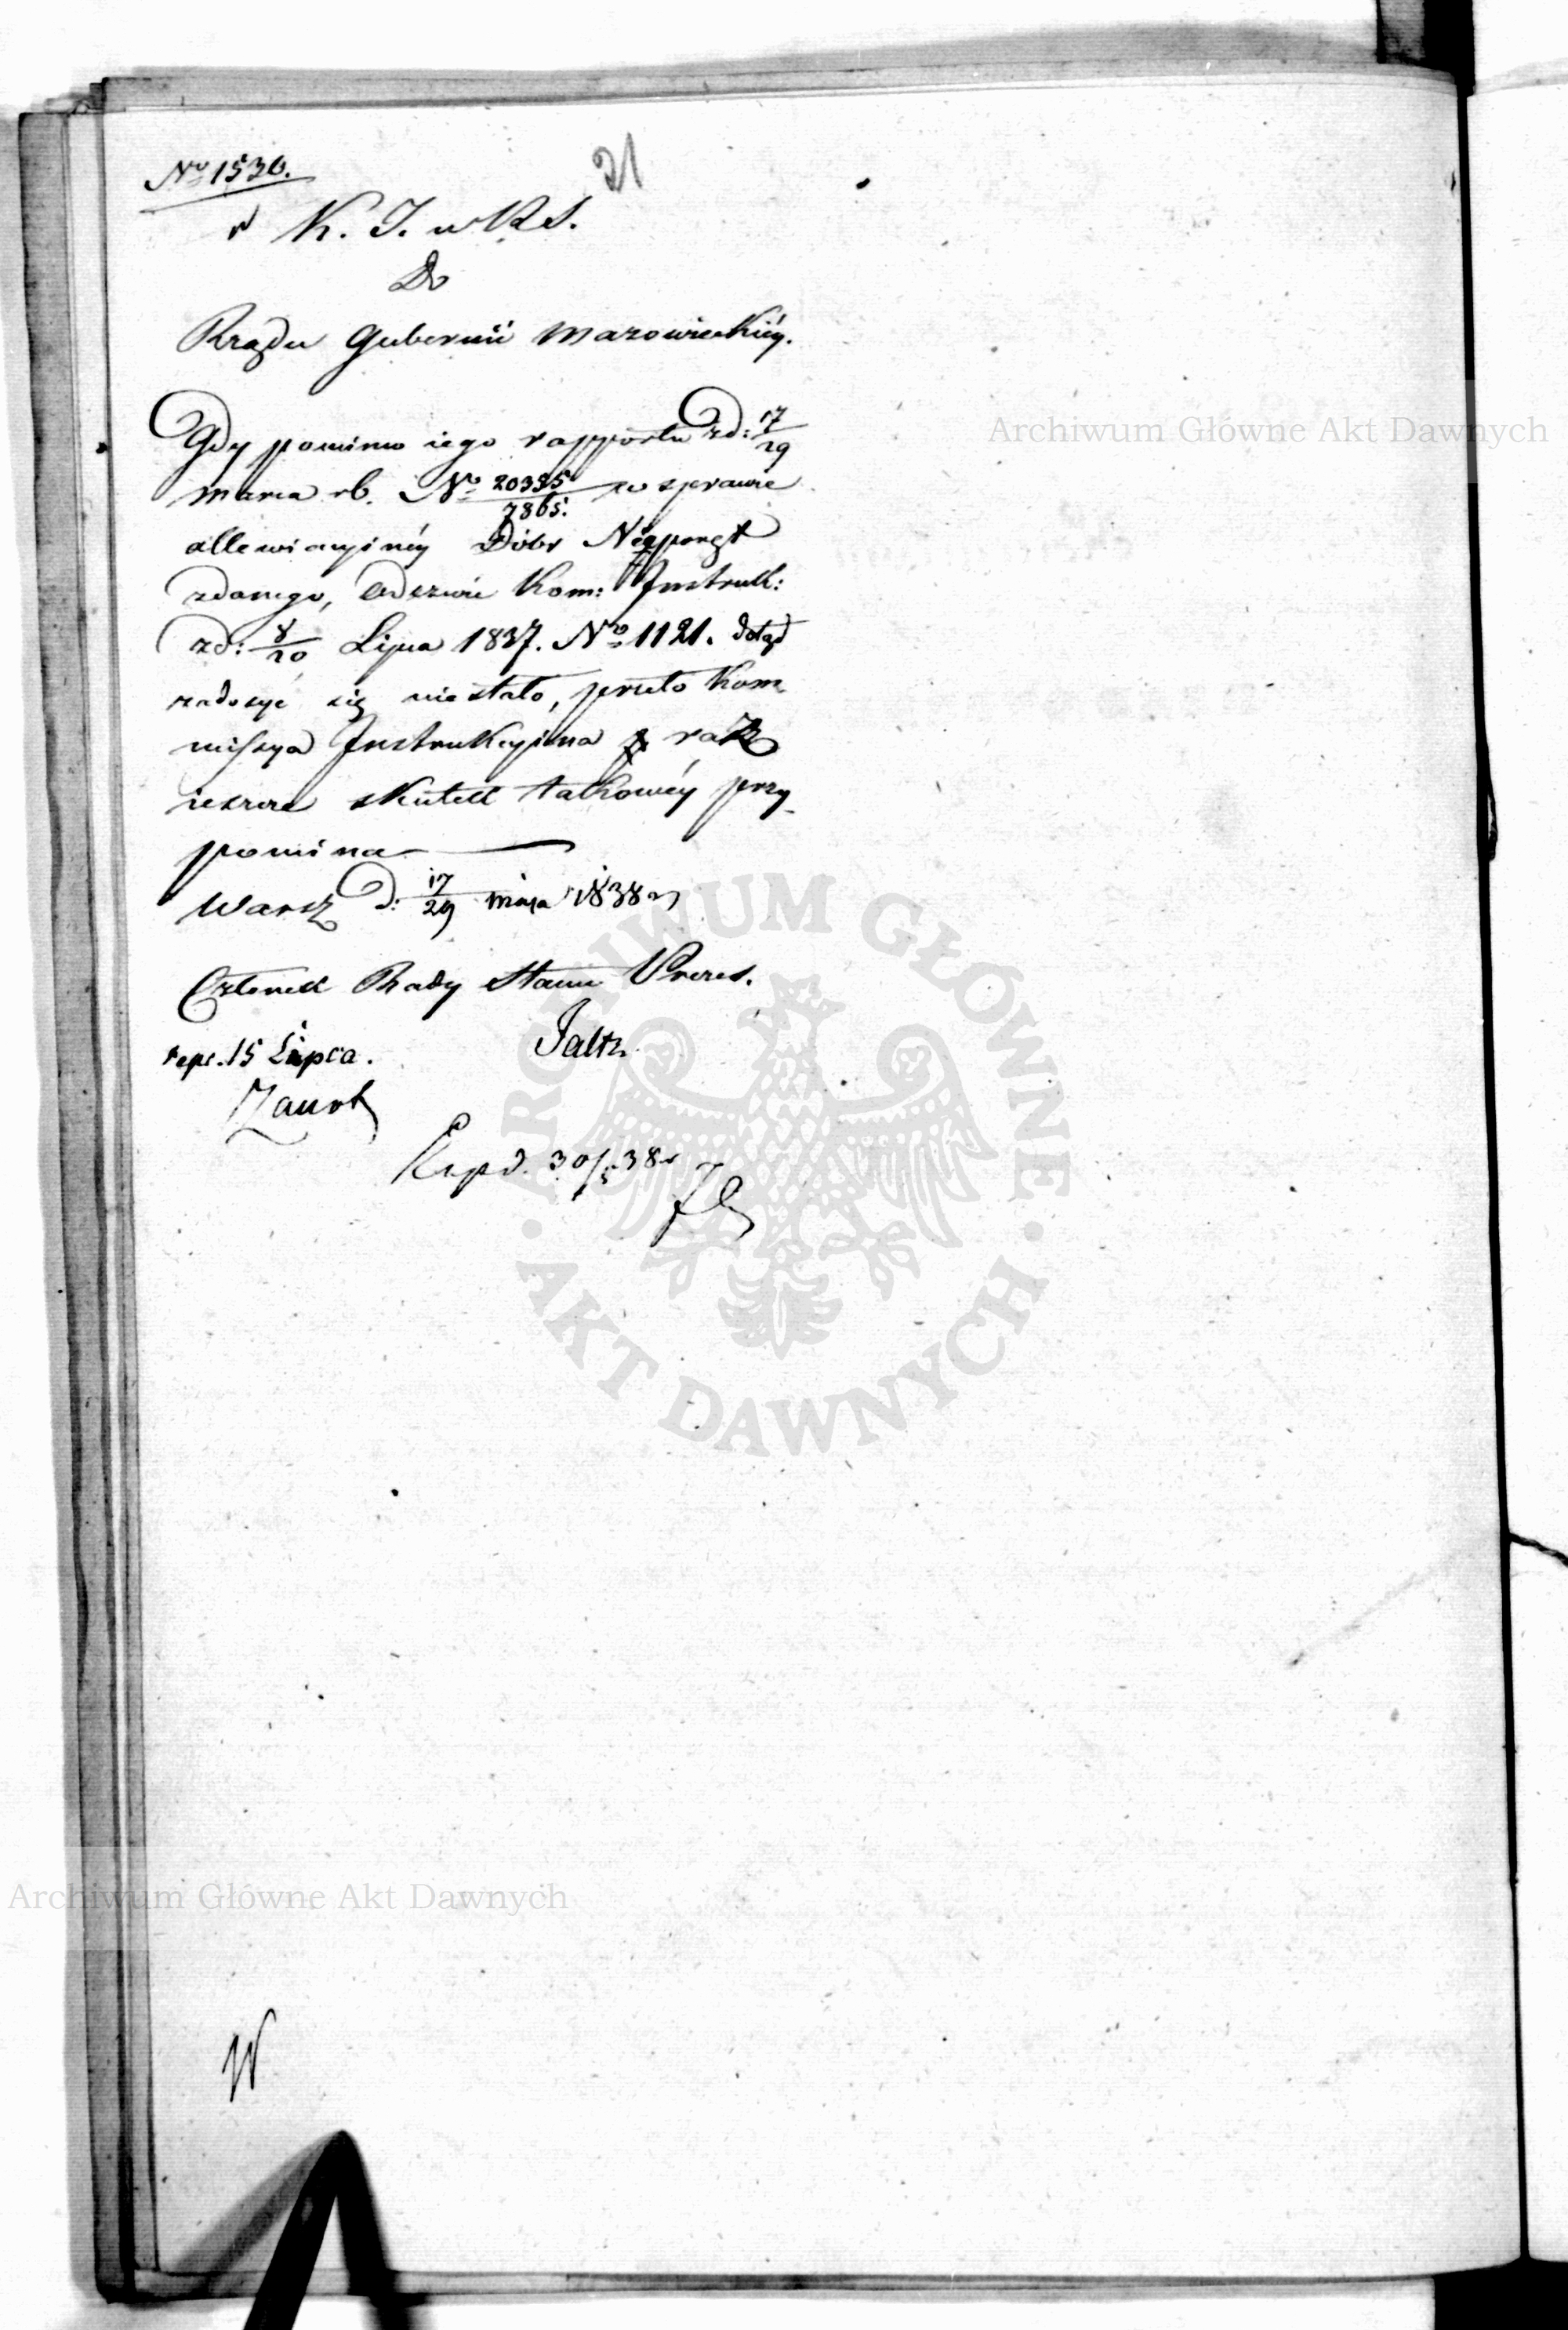 21
No 1530.
K. I. w R. S.
Do
Rządu Gubernii Mazowieckiéy.
Gdy pomimo iego rapportu z d: 17/29
Marca rb. No 20335/7865. w sprawie
allewiacyinéy Dóbr Nieporęt
zdanego, Odezwie Kom: Instruk:
z d: 8/20 Lipca 1837. No 1121. dotąd
zadosyć się niestało, przeto Kom
missya Instrukcyina raz
ieszcze skutek takowéy przy_
pomina
Warsz d: 17/29 Maja 1838
Członek Rady Stanu Prezes.
repr. 15 Lipca.
Exped. 30/5 38
Archiwum Główne Akt Dawnych
ARCHIWUM GŁÓWNE
· AKT DAWNYCH ·
Archiwum Główne Akt Dawnych